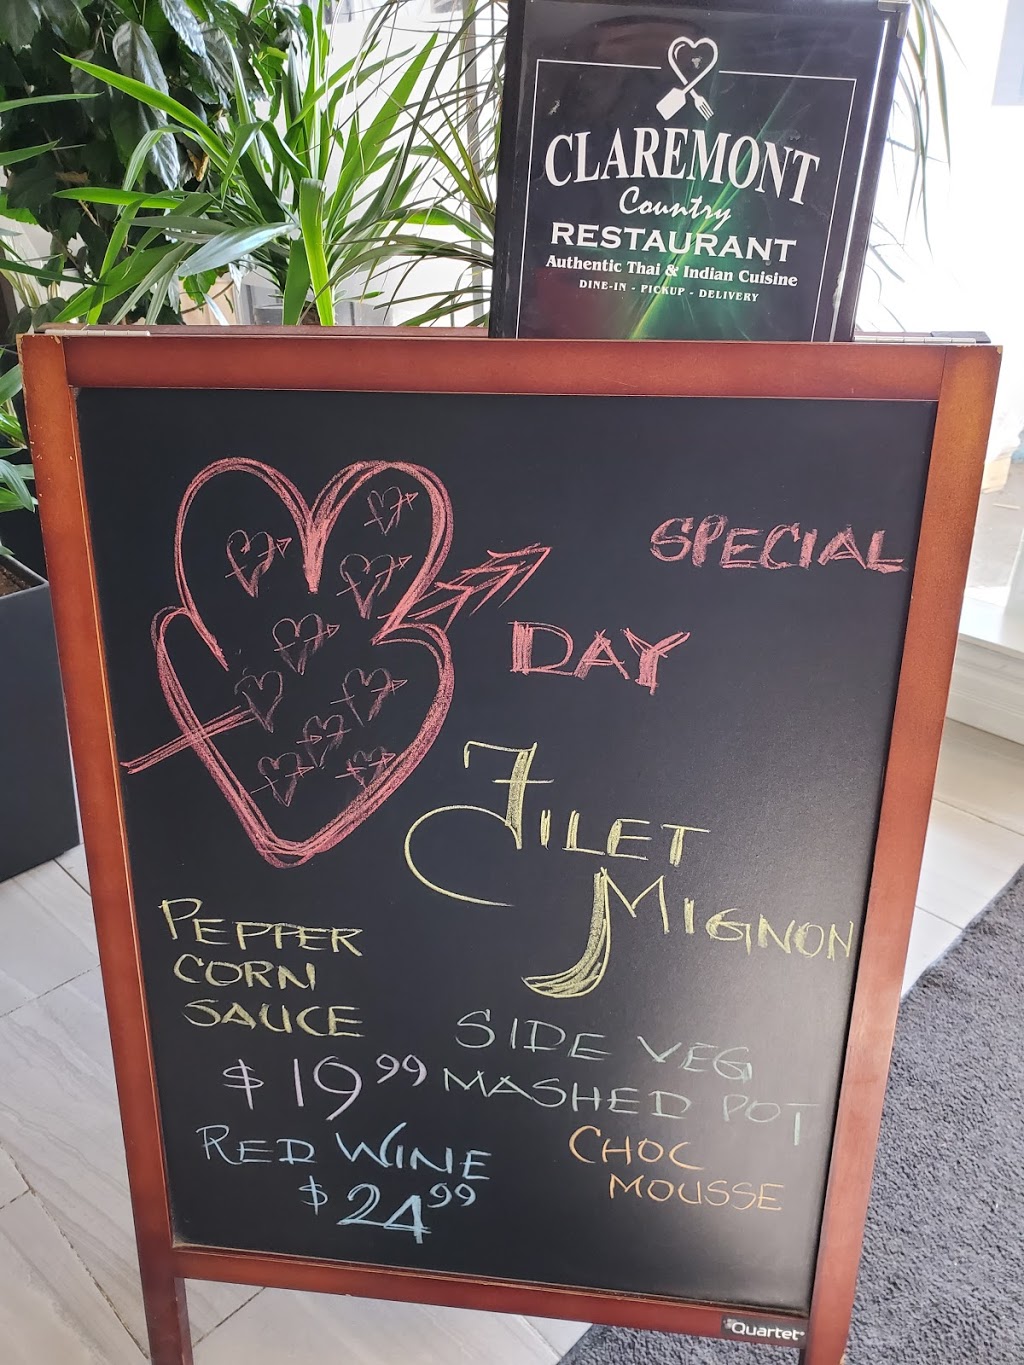 CLAREMONT
Country
RESTAURANT
Authentic Thai & Indian Cuisine
DINE-IN - PICKUP - DELIVERY
SPECIAL
DAY
FILET
MIGNON
PEPPER
CORN
SAUCE
$19.99
SIDE VEG
MASHED POT
RED WINE
$24.99
CHOC
MOUSSE
Quartet